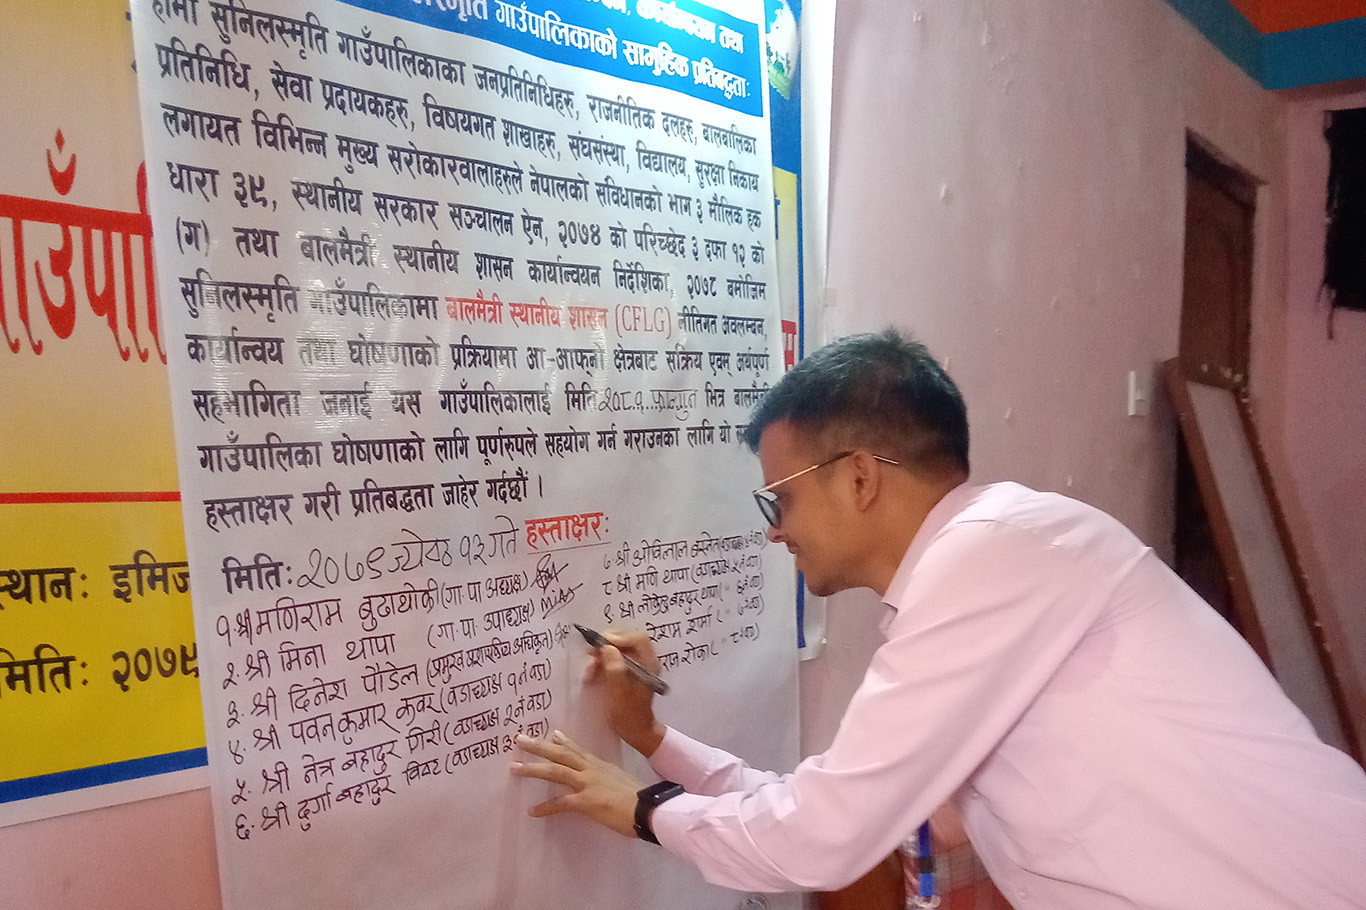 कार्यान्वयन तथा
गाउँपालिकाको सामुहिक प्रतिबद्धताः
हामी सुनिलस्मृति गाउँपालिकाका जनप्रतिनिधिहरु, राजनीतिक दलहरु, बालबालिका
प्रतिनिधि, सेवा प्रदायकहरु, विषयगत शाखाहरु, संघसंस्था, विद्यालय, सुरक्षा निकाय
लगायत विभिन्न मुख्य सरोकारवालाहरुले नेपालको संविधानको भाग ३ मौलिक हक
धारा ३९, स्थानीय सरकार सञ्चालन ऐन, २०७४ को परिच्छेद ३ दफा १२ को
(ग) तथा बालमैत्री स्थानीय शासन कार्यान्वयन निर्देशिका, २०७८ बमोजिम
सुनिलस्मृति गाउँपालिकामा बालमैत्री स्थानीय शासन (CFLG) नीतिगत अवलम्बन,
कार्यान्वय तथा घोषणाको प्रक्रियामा आ-आफ्नो क्षेत्रबाट सक्रिय एवम् अर्थपूर्ण
सहभागिता जनाई यस गाउँपालिकालाई मिति २०८१ फाल्गुन भित्र बालमैत्री
गाउँपालिका घोषणाको लागि पूर्णरुपले सहयोग गर्न गराउनका लागि यो
हस्ताक्षर गरी प्रतिबद्धता जाहेर गर्दछौं ।
मितिः २०७९ ज्येष्ठ १२ गते हस्ताक्षरः
१. श्री मणिराम बुढाथोकी (गा.पा अध्यक्ष)
२. श्री मिना थापा (गा.पा. उपाध्यक्ष)
३. श्री दिनेश पौडेल (प्रमुख प्रशासकीय अधिकृत)
४. श्री पवनकुमार कवर (वडाध्यक्ष १ नं वडा)
५. श्री नेत्र बहादुर गिरी (वडाध्यक्ष २ नं वडा)
६. श्री दुर्गा बहादुर विष्ट (वडाध्यक्ष ३ नं वडा)
७. श्री ओविलाल बस्नेत (वडाध्यक्ष ४ नं वडा)
८. श्री मणि थापा (वडाध्यक्ष ५ नं वडा)
९. श्री लोकेन्द्र बहादुर थापा (" ६ नं वडा)
शर्मा (" ७ नं वडा)
रोका (" ८ नं वडा)
गाउँपालि
स्थानः इमिज
मितिः २०७९